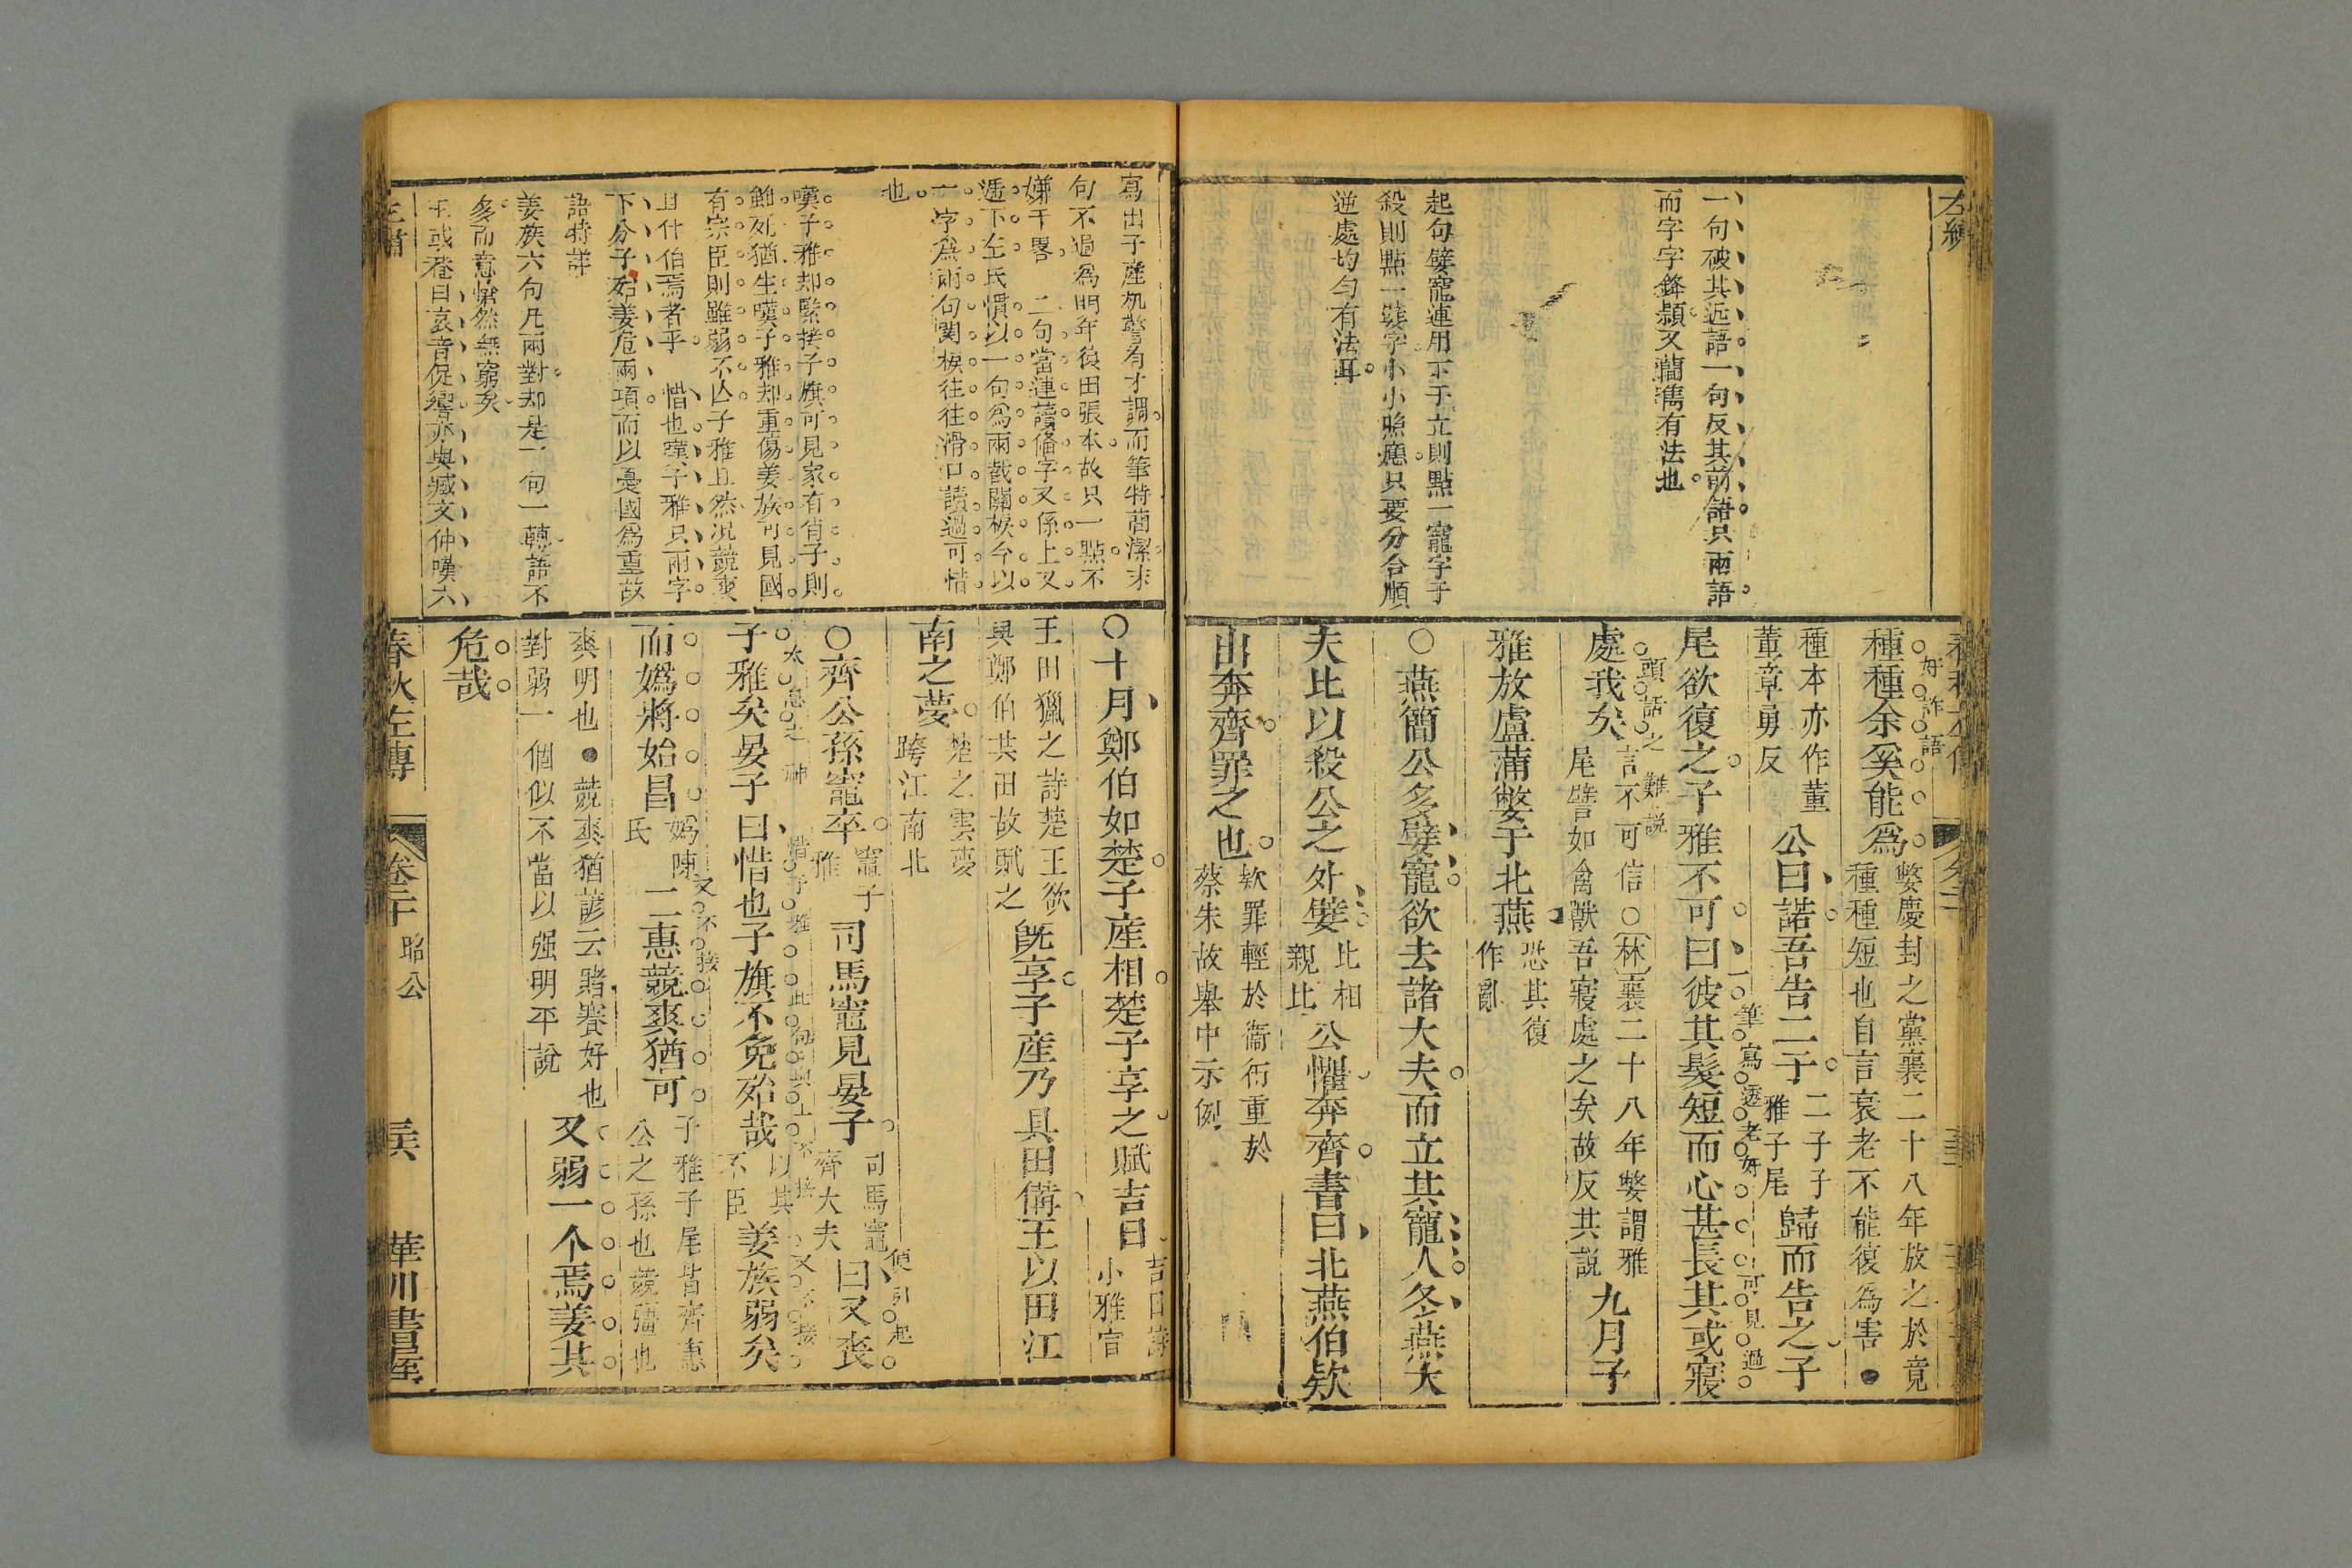 一句破其近語一句反其前語只兩語
而字字鋒頴又簡雋有法也
起句嬖寵連用下于立則點一寵字于
殺則點一嬖字小小照應只要分合順
逆處均勻有法耳
種種余奚能爲
好詐語
嫳慶封之黨襄二十八年放之於竟
種種短也自言衰老不能復爲害●
種本亦作董
董章勇反
公曰諾吾告二子
二子子
雅子尾
歸而告之子
尾欲復之子雅不可曰彼其髮短而心甚長其或寢
一筆寫透老奸
可見過
處我矣
頭話之難説
言不可信○林襄二十八年嫳謂雅
尾譬如禽獸吾寢處之矣故反其説
九月子
雅放盧蒲嫳于北燕
恐其復
作亂
○燕簡公多嬖寵欲去諸大夫而立其寵人冬燕大
夫比以殺公之外嬖
比相
親比
公懼奔齊書曰北燕伯欵
出奔齊罪之也
欵罪輕於衞衎重於
蔡朱故舉中示例
寫出子產机警有才調而筆特簡潔末
句不過爲明年後田張本故只一點不
嫌于畧 二句當連讀俻字又係上又
遞下左氏慣以一句爲兩截關棙今以
一字爲兩句関棙往往滑口讀過可惜
也
嘆子雅却緊接子旗可見家有肖子則
雖死猶生嘆子雅却重傷姜族可見國
有宗臣則雖弱不亾子雅且然况競爽
且什伯焉者乎 惜也嘆子雅只兩字
下分子殆姜危兩項而以憂國爲重故
語特詳
姜族六句凡兩對却是一句一轉語不
多而意愴然無窮矣
王或菴曰哀音促響亦與臧文仲嘆六
○十月鄭伯如楚子產相楚子享之賦吉日
吉日詩
小雅宣
王田獵之詩楚王欲
與鄭伯共田故賦之
旣享子產乃具田備王以田江
南之夢
楚之雲夢
跨江南北
○齊公孫竈卒
竈子
雅
司馬竈見晏子
司馬竈
齊大夫
曰又喪
便引起
子雅矣晏子曰惜也子旗不免殆哉
以其
不臣
姜族弱矣
而嬀將始昌
嬀陳
氏
二惠競爽猶可
子雅子尾皆齊惠
公之孫也競彊也
爽明也●競爽猶諺云賭賽好也
對弱一個似不當以强明平說
又弱一个焉姜其
危哉
春秋左傳
卷二十
昭公
華川書屋